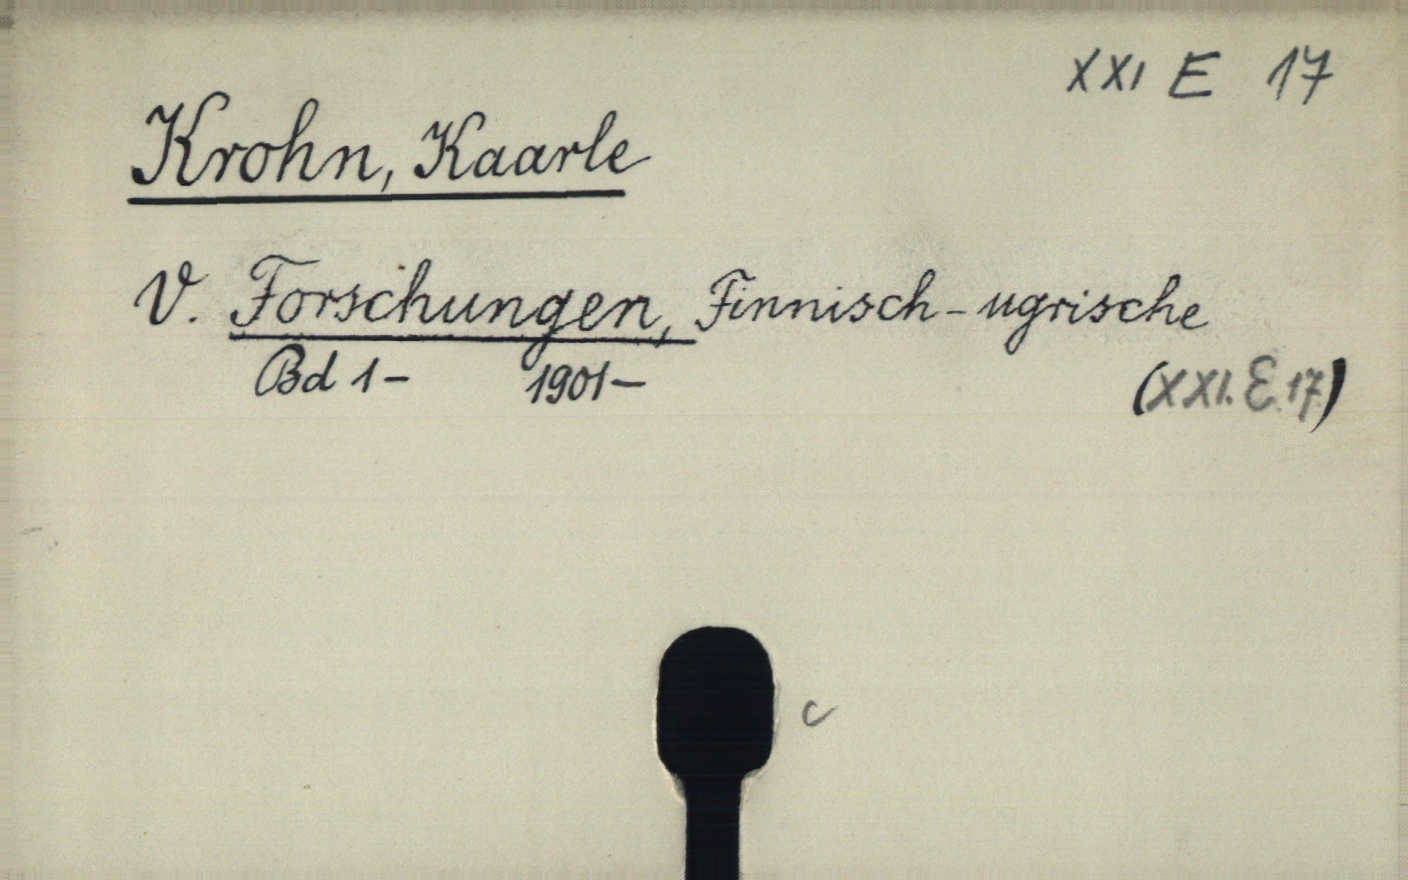 XXI E 17
Krohn, Kaarle
V. Forschungen, Finnisch-ugrische
Bd 1- 1901-
(XXI. E. 17)
c